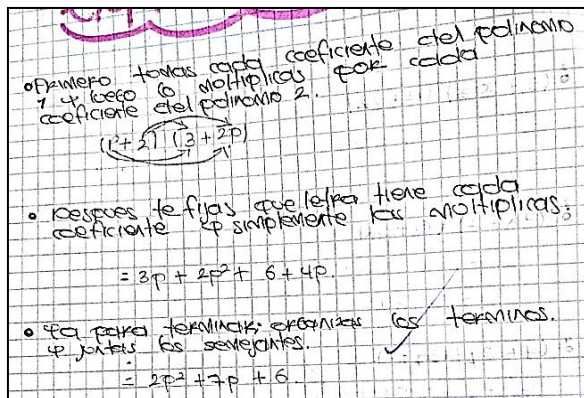 • Primero tomas cada coeficiente del polinomio
1 y luego lo moltiplicas por cada
coeficiente del polinomio 2.
(p+2) (3+2p)
• Despues te fijas que letra tiene cada
coeficiente y simplemente las moltiplicas.
= 3p + 2p² + 6 + 4p.
• Ya para terminar; organizas los terminos.
y juntas los semejantes.
= 2p² + 7p + 6.